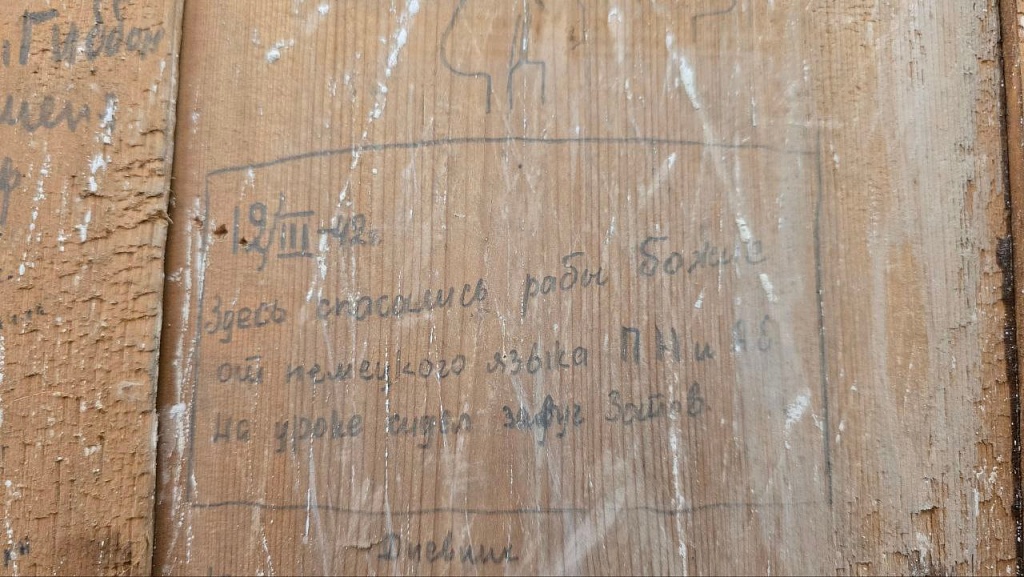 Гиббон
19/III-42г.
Здесь спасались рабы Божие
от немецкого языка П Н и А Б
на уроке сидел завуч Зотов
Дневник